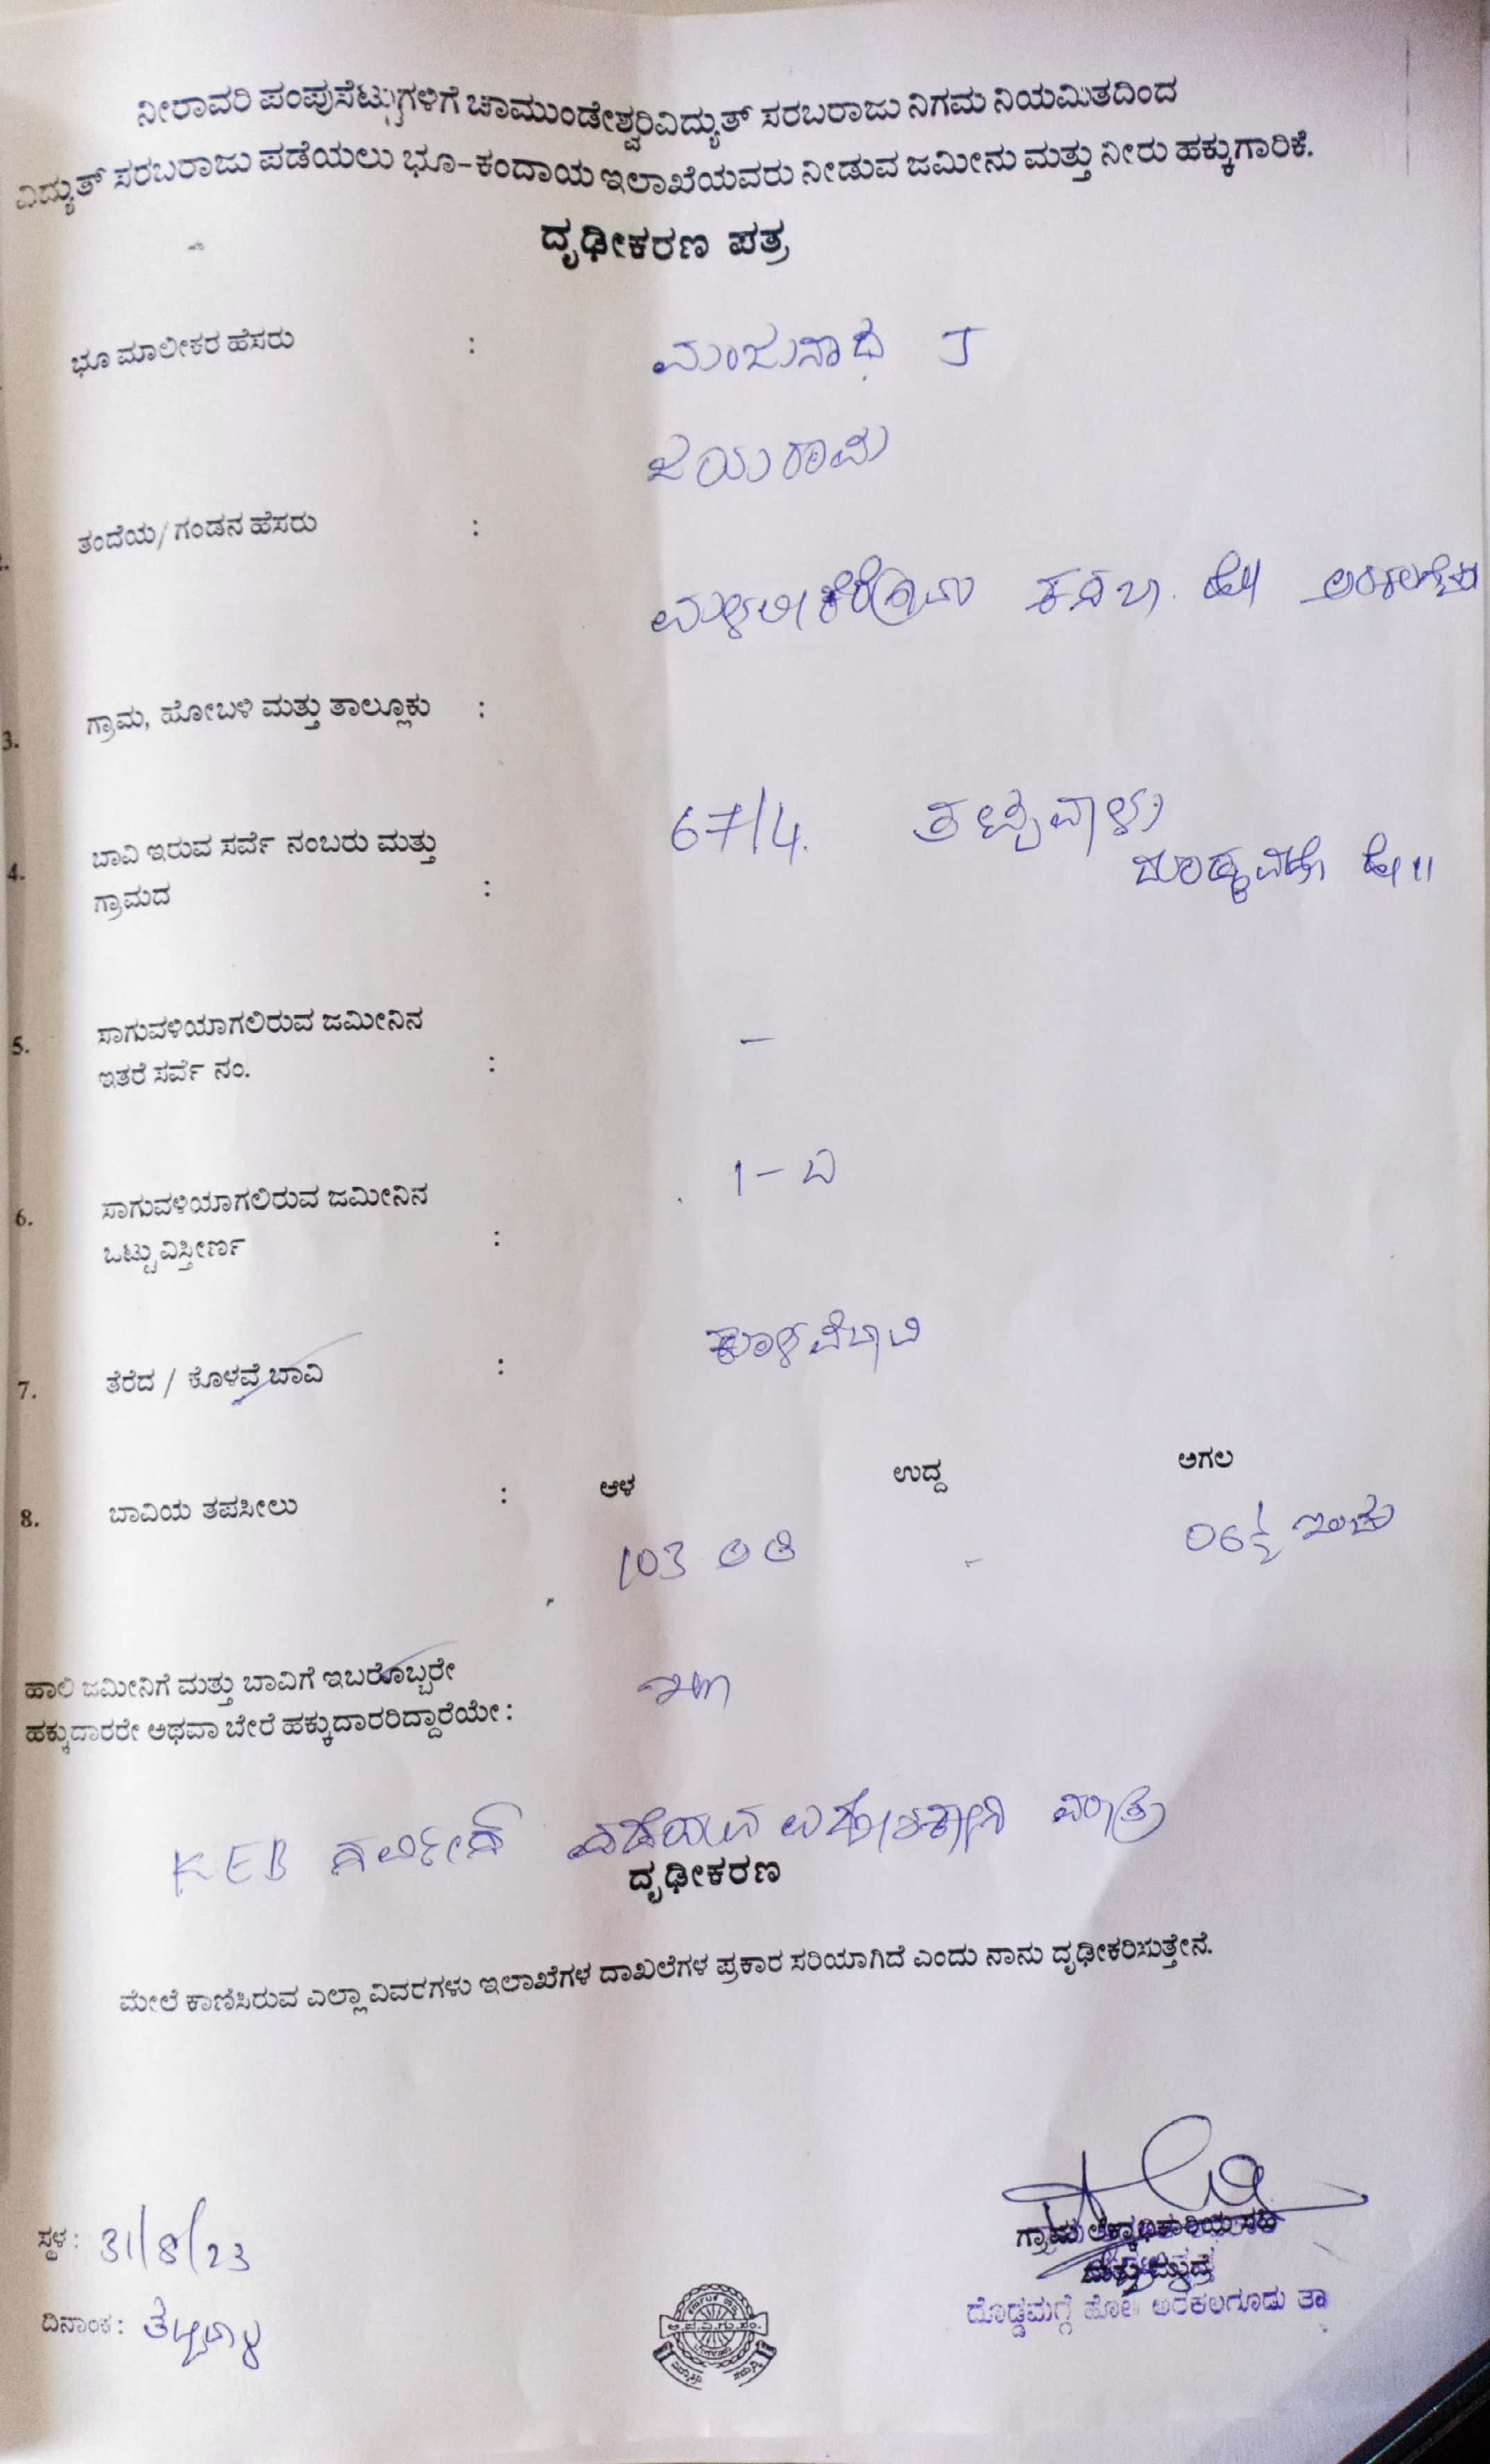 ನೀರಾವರಿ ಪಂಪುಸೆಟ್ಟುಗಳಿಗೆ ಚಾಮುಂಡೇಶ್ವರಿವಿದ್ಯುತ್ ಸರಬರಾಜು ನಿಗಮ ನಿಯಮಿತದಿಂದ
ವಿದ್ಯುತ್ ಸರಬರಾಜು ಪಡೆಯಲು ಭೂ-ಕಂದಾಯ ಇಲಾಖೆಯವರು ನೀಡುವ ಜಮೀನು ಮತ್ತು ನೀರು ಹಕ್ಕುಗಾರಿಕೆ.
ದೃಢೀಕರಣ ಪತ್ರ
ಭೂ ಮಾಲೀಕರ ಹೆಸರು : ಮಂಜುನಾಥ J
ಜಯರಾಮ
ತಂದೆಯ/ ಗಂಡನ ಹೆಸರು :
3. ಗ್ರಾಮ, ಹೋಬಳಿ ಮತ್ತು ತಾಲ್ಲೂಕು :
4. ಬಾವಿ ಇರುವ ಸರ್ವೆ ನಂಬರು ಮತ್ತು 67/4.
ಗ್ರಾಮದ :
5. ಸಾಗುವಳಿಯಾಗಲಿರುವ ಜಮೀನಿನ –
ಇತರೆ ಸರ್ವೆ ನಂ. :
6. ಸಾಗುವಳಿಯಾಗಲಿರುವ ಜಮೀನಿನ
ಒಟ್ಟುವಿಸ್ತೀರ್ಣ :
7. ತೆರೆದ / ಕೊಳವೆ ಬಾವಿ : ಕೊಳವೆಬಾವಿ
8. ಬಾವಿಯ ತಪಸೀಲು : ಆಳ ಉದ್ದ ಅಗಲ
103 ಅಡಿ - 06½ ಇಂಚು
ಹಾಲಿ ಜಮೀನಿಗೆ ಮತ್ತು ಬಾವಿಗೆ ಇಬರೊಬ್ಬರೇ
ಹಕ್ಕುದಾರರೇ ಅಥವಾ ಬೇರೆ ಹಕ್ಕುದಾರರಿದ್ದಾರೆಯೇ :
KEB ಪಡೆಯುವ ಮಾತ್ರ
ದೃಢೀಕರಣ
ಮೇಲೆ ಕಾಣಿಸಿರುವ ಎಲ್ಲಾ ವಿವರಗಳು ಇಲಾಖೆಗಳ ದಾಖಲೆಗಳ ಪ್ರಕಾರ ಸರಿಯಾಗಿದೆ ಎಂದು ನಾನು ದೃಢೀಕರಿಸುತ್ತೇನೆ.
ಗ್ರಾಮ ಲೆಕ್ಕಾಧಿಕಾರಿಯ ಸಹಿ
ಮತ್ತು ಮುದ್ರೆ
ದೊಡ್ಡಮಗ್ಗೆ ಹೋ॥ ಅರಕಲಗೂಡು ತಾ
ಸ್ಥಳ : 31/8/23
ದಿನಾಂಕ :